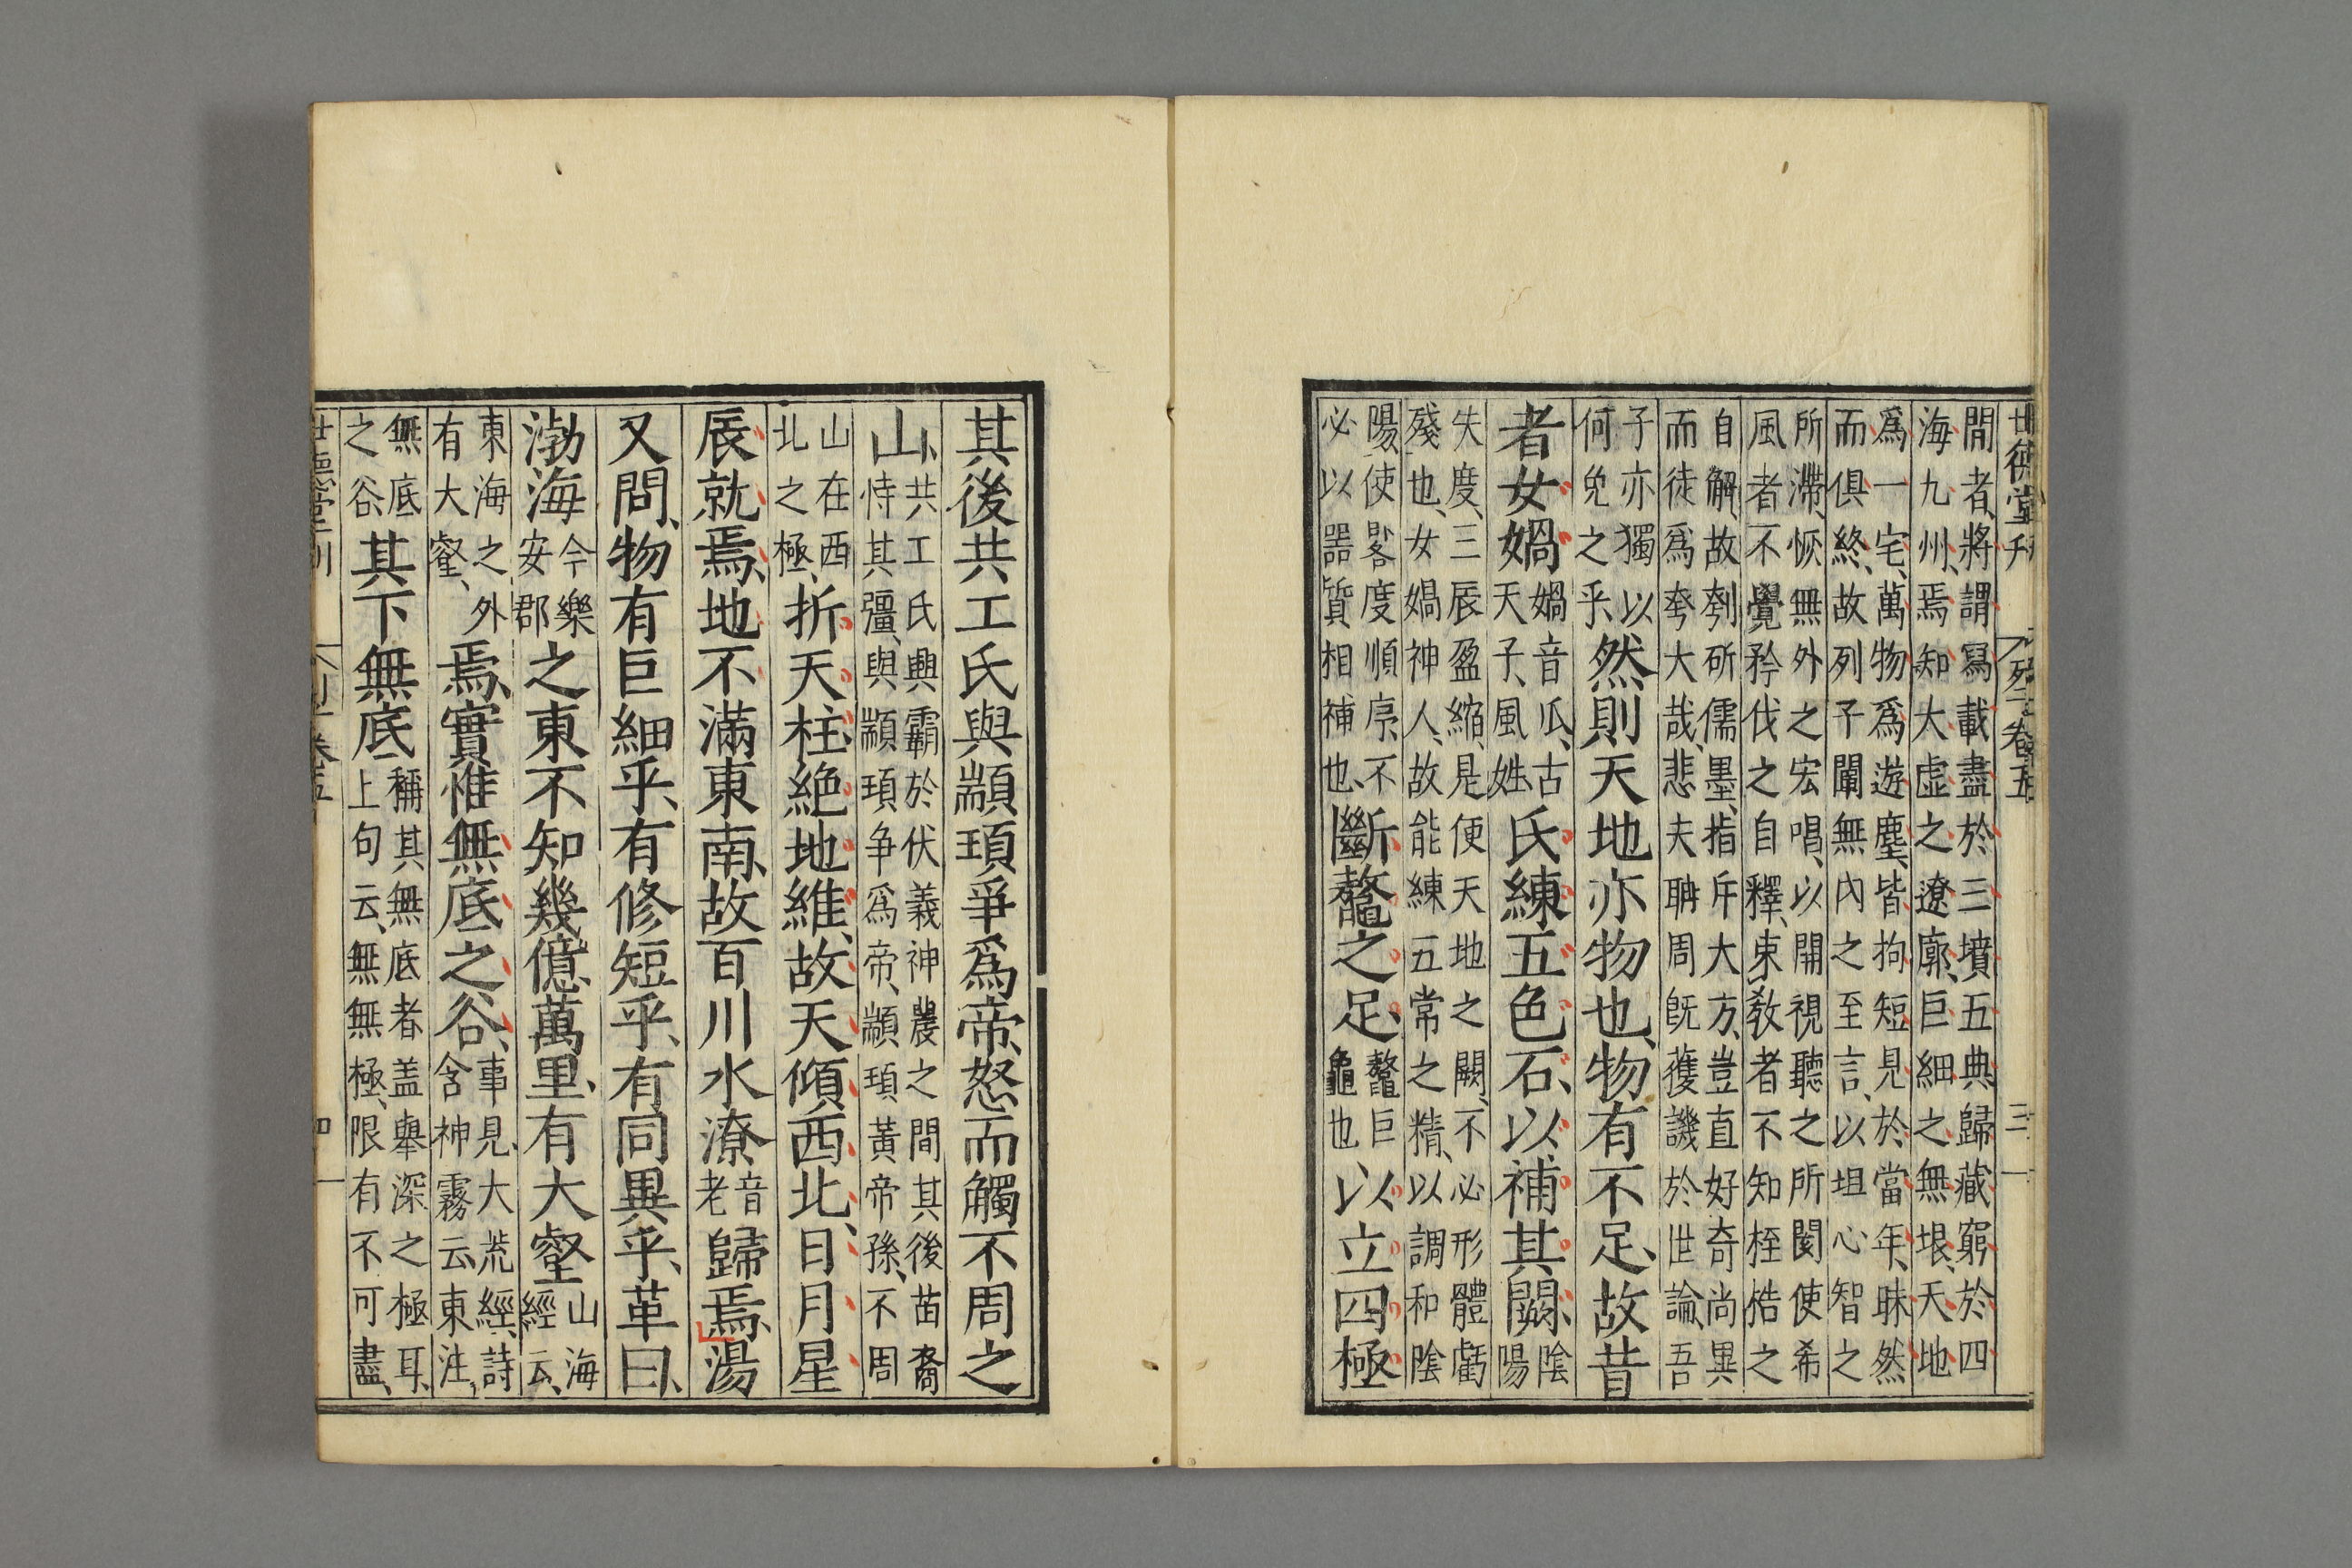 世德堂刊 列子卷五 三
閒者將謂寡載盡於三墳五典歸藏窮於四
海九州焉知大虛之遼廓巨細之無垠天地
爲一宅萬物爲遊塵皆拘短見於當年昧然
而俱終故列子闡無內之至言以坦心智之
所滯恢無外之宏唱以開視聽之所閡使希
風者不覺矜伐之自釋束教者不知桎梏之
自解故刳斫儒墨指斥大方豈直好奇尚異
而徒爲夸大哉悲夫聃周旣獲譏於世論吾
子亦獨以
何免之乎
然則天地亦物也物有不足故昔
者女媧
媧音瓜古
天子風姓
氏練五色石以補其闕
陰
陽
失度三辰盈縮是便天地之闕不必形體虧
殘也女媧神人故能練五常之精以調和陰
陽使晷度順序不
必以器質相補也
斷鼇之足
鼇巨
龜也
以立四極
其後共工氏與顓頊爭爲帝怒而觸不周之
山
共工氏興霸於伏羲神農之間其後苗裔
恃其彊與顓頊争爲帝顓頊黃帝孫不周
山在西
北之極
折天柱絶地維故天傾西北日月星
辰就焉地不滿東南故百川水潦
音
老
歸焉湯
又問物有巨細乎有修短乎有同異乎革曰
渤海
今樂
安郡
之東不知幾億萬里有大壑
山海
經云
東海之外
有大壑
焉實惟無底之谷
事見大荒經詩
含神霧云東注
無底
之谷
其下無底
稱其無底者盖舉深之極耳
上句云無無極限有不可盡
世德堂刊 列子卷五 四